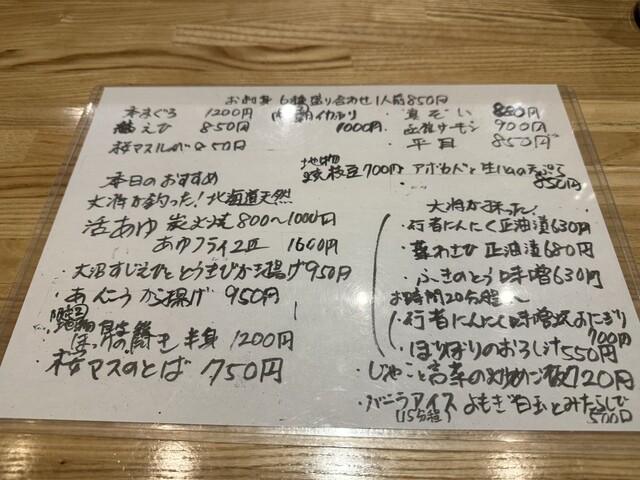 お刺身 6種盛り合わせ 1人前850円
本まぐろ 1200円
えび 850円
桜マスルイベ 850円
イカ 1000円
真ぞい 880円
函館サーモン 900円
平目 850円
地物 枝豆 700円
アボカドと生ハムの天ぷら 850円
本日のおすすめ
大将が釣った!北海道天然
活あゆ 炭火焼 800〜1000円
あゆフライ2匹 1600円
・大沼すじえびととうきびかき揚げ 950円
・あんこうから揚げ 950円
ほっけの開き 半身 1200円
・桜マスのとば 750円
大将が採った!
・行者にんにく 正油漬 630円
・葉わさび 正油漬 680円
・ふきのとう味噌 630円
お時間20分程
・行者にんにく味噌焼おにぎり 700円
・ほりほりのおろし汁 550円
・じゃこと高菜の 720円
・バニラアイス よもぎ白玉とみたらし 500円
(15分程)